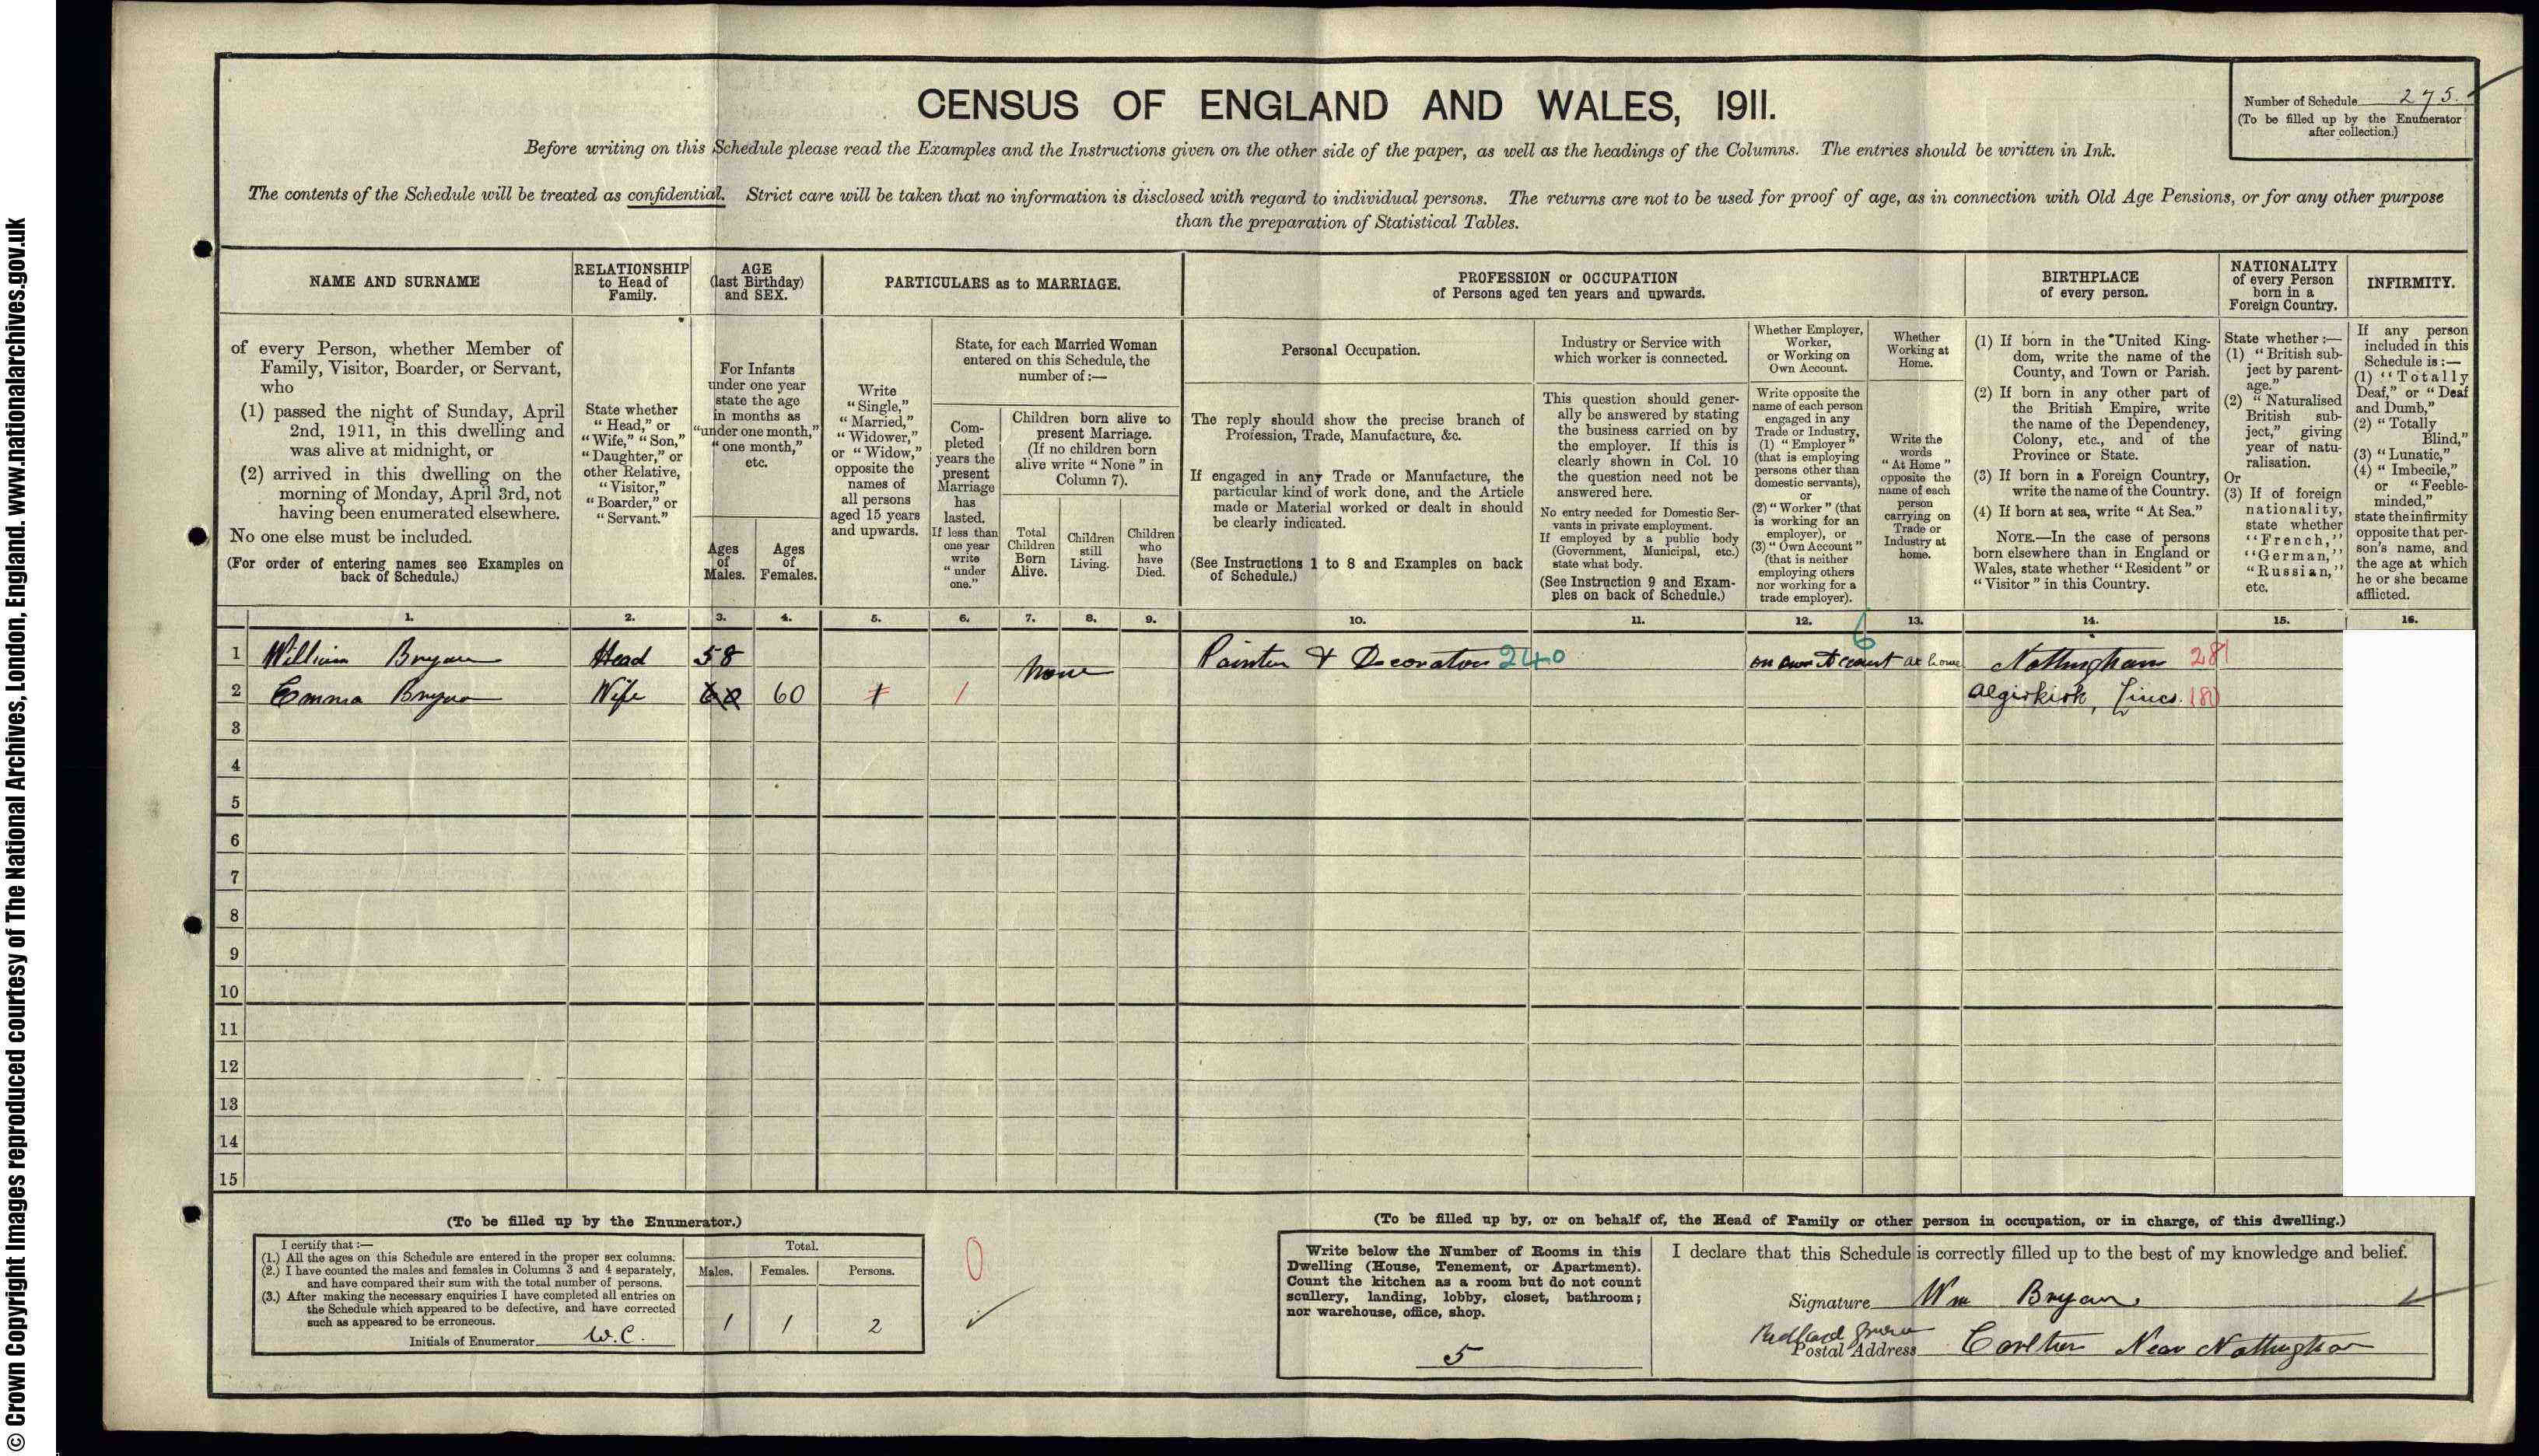 © Crown Copyright Images reproduced courtesy of The National Archives, London, England. www.nationalarchives.gov.uk
CENSUS OF ENGLAND AND WALES, 1911.
Number of Schedule 275.
(To be filled up by the Enumerator
after collection.)
Before writing on this Schedule please read the Examples and the Instructions given on the other side of the paper, as well as the headings of the Columns. The entries should be written in Ink.
The contents of the Schedule will be treated as confidential. Strict care will be taken that no information is disclosed with regard to individual persons. The returns are not to be used for proof of age, as in connection with Old Age Pensions, or for any other purpose
than the preparation of Statistical Tables.
NAME AND SURNAME
of every Person, whether Member of
Family, Visitor, Boarder, or Servant,
who
(1) passed the night of Sunday, April
2nd, 1911, in this dwelling and
was alive at midnight, or
(2) arrived in this dwelling on the
morning of Monday, April 3rd, not
having been enumerated elsewhere.
No one else must be included.
(For order of entering names see Examples on
back of Schedule.)
RELATIONSHIP
to Head of
Family.
State whether
"Head," or
"Wife," "Son,"
"Daughter," or
other Relative,
"Visitor,"
"Boarder," or
"Servant."
AGE
(last Birthday)
and SEX.
For Infants
under one year
state the age
in months as
"under one month,"
"one month,"
etc.
Ages
of
Males.
Ages
of
Females.
PARTICULARS as to MARRIAGE.
Write
"Single,"
"Married,"
"Widower,"
or "Widow,"
opposite the
names of
all persons
aged 15 years
and upwards.
State, for each Married Woman
entered on this Schedule, the
number of :—
Com-
pleted
years the
present
Marriage
has
lasted.
If less than
one year
write
"under
one."
Children born alive to
present Marriage.
(If no children born
alive write "None" in
Column 7).
Total
Children
Born
Alive.
Children
still
Living.
Children
who
have
Died.
PROFESSION or OCCUPATION
of Persons aged ten years and upwards.
Personal Occupation.
The reply should show the precise branch of
Profession, Trade, Manufacture, &c.
If engaged in any Trade or Manufacture, the
particular kind of work done, and the Article
made or Material worked or dealt in should
be clearly indicated.
(See Instructions 1 to 8 and Examples on back
of Schedule.)
Industry or Service with
which worker is connected.
This question should gener-
ally be answered by stating
the business carried on by
the employer. If this is
clearly shown in Col. 10
the question need not be
answered here.
No entry needed for Domestic Ser-
vants in private employment.
If employed by a public body
(Government, Municipal, etc.)
state what body.
(See Instruction 9 and Exam-
ples on back of Schedule.)
Whether Employer,
Worker,
or Working on
Own Account.
Write opposite the
name of each person
engaged in any
Trade or Industry,
(1) "Employer"
(that is employing
persons other than
domestic servants),
or
(2) "Worker" (that
is working for an
employer), or
(3) "Own Account"
(that is neither
employing others
nor working for a
trade employer).
Whether
Working at
Home.
Write the
words
"At Home"
opposite the
name of each
person
carrying on
Trade or
Industry at
home.
BIRTHPLACE
of every person.
(1) If born in the United King-
dom, write the name of the
County, and Town or Parish.
(2) If born in any other part of
the British Empire, write
the name of the Dependency,
Colony, etc., and of the
Province or State.
(3) If born in a Foreign Country,
write the name of the Country.
(4) If born at sea, write "At Sea."
NOTE.—In the case of persons
born elsewhere than in England or
Wales, state whether "Resident" or
"Visitor" in this Country.
NATIONALITY
of every Person
born in a
Foreign Country.
State whether :—
(1) "British sub-
ject by parent-
age."
(2) "Naturalised
British sub-
ject," giving
year of natu-
ralisation.
Or
(3) If of foreign
nationality,
state whether
"French,"
"German,"
"Russian,"
etc.
INFIRMITY.
If any person
included in this
Schedule is :—
(1) "Totally
Deaf," or "Deaf
and Dumb,"
(2) "Totally
Blind,"
(3) "Lunatic,"
(4) "Imbecile,"
or "Feeble-
minded,"
state the infirmity
opposite that per-
son's name, and
the age at which
he or she became
afflicted.
1. 2. 3. 4. 5. 6. 7. 8. 9. 10. 11. 12. 13. 14. 15. 16.
6
1 William Bryan Head 58 None Painter & Decorator 240 on own Account at home Nottingham 281
2 Emma Bryan Wife 60 60 1 1 Algirkirk, Lincs. 180
3
4
5
6
7
8
9
10
11
12
13
14
15
(To be filled up by the Enumerator.)
I certify that :—
(1.) All the ages on this Schedule are entered in the proper sex columns.
(2.) I have counted the males and females in Columns 3 and 4 separately,
and have compared their sum with the total number of persons.
(3.) After making the necessary enquiries I have completed all entries on
the Schedule which appeared to be defective, and have corrected
such as appeared to be erroneous.
Initials of Enumerator W.C.
Total.
Males. Females. Persons.
1 1 2
0
(To be filled up by, or on behalf of, the Head of Family or other person in occupation, or in charge, of this dwelling.)
Write below the Number of Rooms in this
Dwelling (House, Tenement, or Apartment).
Count the kitchen as a room but do not count
scullery, landing, lobby, closet, bathroom;
nor warehouse, office, shop.
5
I declare that this Schedule is correctly filled up to the best of my knowledge and belief.
Signature Wm Bryan
Postal Address Carlton Near Nottingham